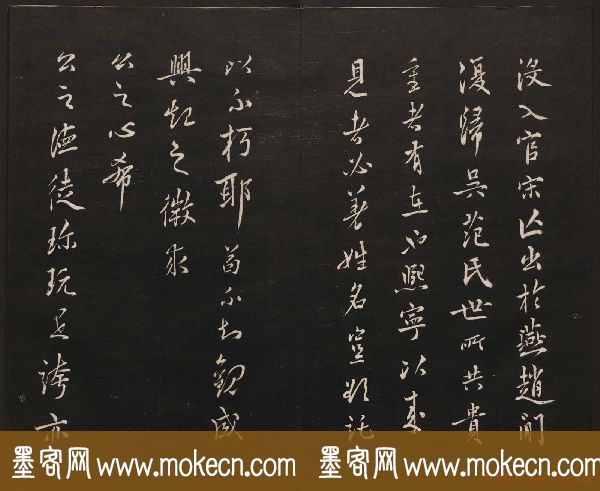 没入官宋亡出於燕趙間
復歸吳范氏世所共貴
重者有在而熙寧以來
見者必著姓名豈欲託
以不朽耶苟不知觀感
興起之徵求
公之心希
公之德徒珍玩是誇亦
墨客网 www.mokecn.com 墨客网 www.mokecn.com